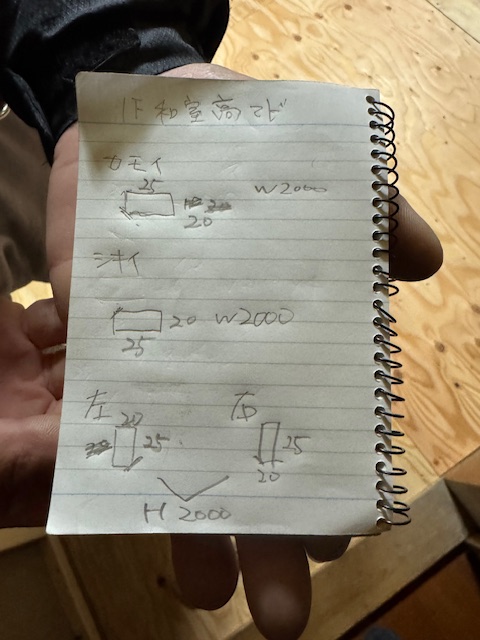 1F 和室高マド
カモイ
25
20
W2000
シキイ
20 W2000
25
左 右
20
25 25
20
H 2000